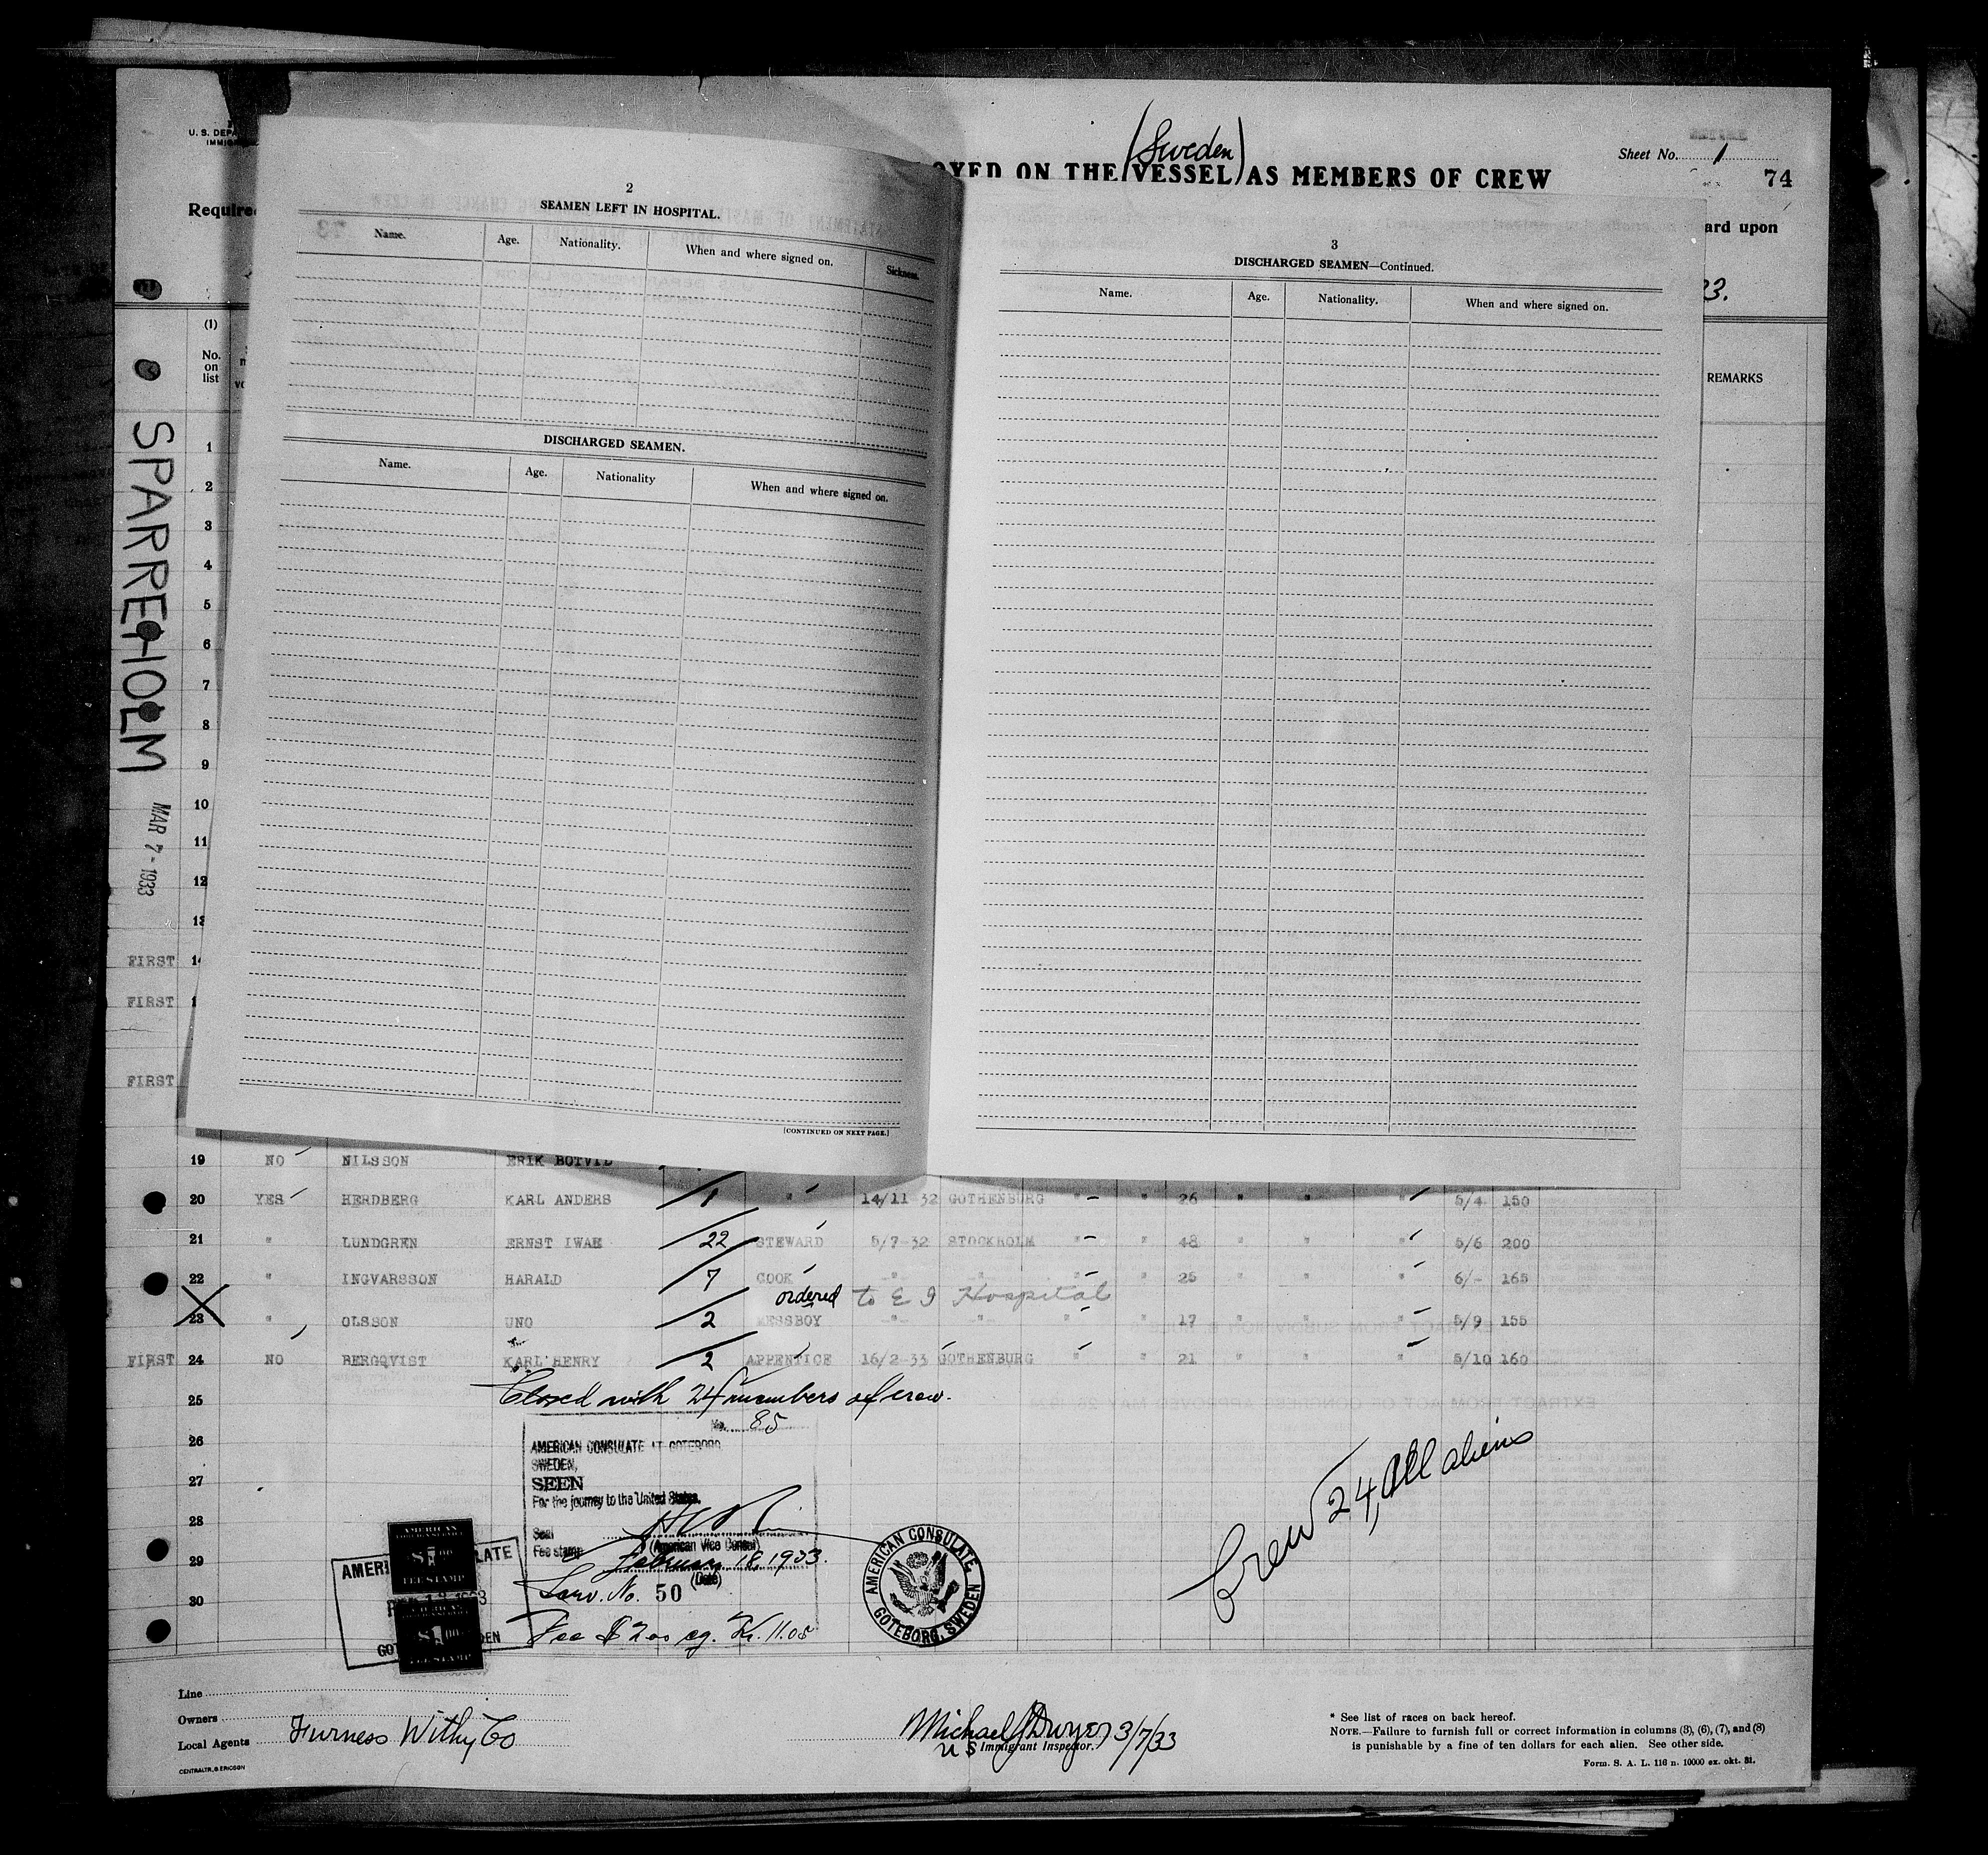 U. S. DEPA
IMMIG
(Sweden)
OYED ON THE VESSEL AS MEMBERS OF CREW
Sheet No. 1
74
Require
ard upon
3.
(1)
No. on list
REMARKS
SPARREHOLM
MAR 7 - 1933
2
SEAMEN LEFT IN HOSPITAL.
Name. Age. Nationality. When and where signed on. Sickness.
DISCHARGED SEAMEN.
Name. Age. Nationality When and where signed on.
[CONTINUED ON NEXT PAGE.]
3
DISCHARGED SEAMEN—Continued.
Name. Age. Nationality. When and where signed on.
1
2
3
4
5
6
7
8
9
10
11
12
13
FIRST 14
FIRST 1
FIRST
19 NO NILSSON ERIK BOTVID
20 YES HERDBERG KARL ANDERS 1 " 14/11 32 GOTHENBURG " " 26 " " " 5/4 150
21 " LUNDGREN ERNST IWAE 22 STEWARD 5/7-32 STOCKHOLM " " 48 " " " 5/6 200
22 " INGVARSSON HARALD 7 COOK " " " " 25 " " " 6/- 165
ordered to E I Hospital
23 " OLSSON UNO 2 MESSBOY " " " " 17 " " " 5/9 155
FIRST 24 NO BERGQVIST KARL HENRY 2 APPENTICE 16/2-33 GOTHENBURG " " 21 " " " 5/10 160
25 Closed with 24 members of crew.
26
27
28
29
30
No. 85
AMERICAN CONSULATE AT GOTEBORG
SWEDEN,
SEEN
For the journey to the United States.
Seal
(American Vice Consul)
Fee stamp February 18, 1933.
(Date)
Serv. No. 50
Fee $ 2.00 eq. Kr. 11.05
AMERICAN CONSULATE
GOTEBORG, SWEDEN
AMERICAN
$1.00
FEE STAMP
$1.00
FEE STAMP
Crew 24, All aliens
Line
Owners
Local Agents Furness Withy Co
CENTRALTR, G. ERICSON
Michael J Dwyer 3/7/33
U S Immigrant Inspector.
* See list of races on back hereof.
NOTE.—Failure to furnish full or correct information in columns (3), (6), (7), and (8)
is punishable by a fine of ten dollars for each alien. See other side.
Form. S. A. L. 116 n. 10000 ex. okt. 31.